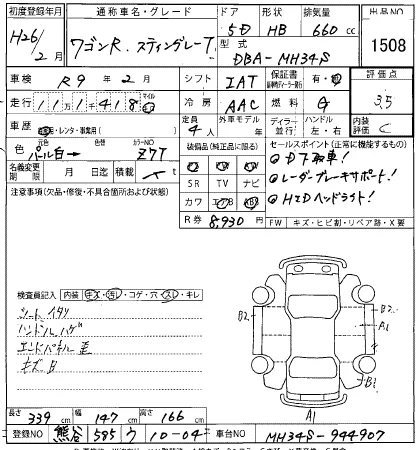 初度登録年月 通称車名・グレード ドア 形状 排気量 出品NO
H26/2月 ワゴンR スティングレーT 5D HB 660cc 1508
型式 DBA-MH34S
車検 R9年2月 シフト IAT 保証書 有・無 評価点
走行 111,418 マイル km 冷房 AAC 燃料 G 3.5
車歴 自家・レンタ・事業用( ) 定員 4人 外車モデル 年 ディーラー・並行 ハンドル 左・右 内装評価 C
色 元色 パール白→ 色替 カラーNO Z7T
装備品(純正品に限る) セールスポイント(正常に機能するもの)
名義変更期限 月 日迄 積載 t
SR TV ナビ
カワ エアB ABS
R券 8,930
①D下取車!
②レーダーブレーキサポート!
③HIDヘッドライト!
FW キズ・ヒビ割・リペア跡・X要
注意事項(欠品・修復・不具合箇所および状態)
検査員記入 内装 キズ・汚レ・コゲ・穴・スレ・キレ
シートイタツ
ハンドルハゲ
エンドパネル歪
キズB
B2
A1
A1
長さ 339cm 幅 147cm 高さ 166cm
登録NO 熊谷 585 ウ 10-04 車台NO MH34S-944907